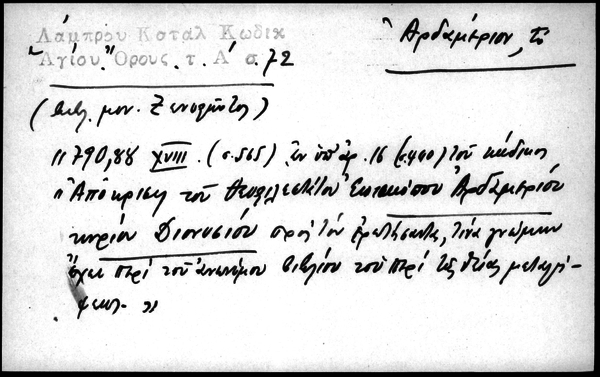 Λάμπρου Καταλ Κωδικ
Ἁγίου Ὄρους τ. Α΄ σ. 72
Ἀρδαμέριον, τὸ
(Βιβλ. μον. Ξενοφῶντος)
790,88 XVIII. (σ. 565) ἐν ὑπ' ἀρ. 16 τοῦ κώδικος
"Ἀπόκρισις τοῦ θεοφιλεστάτου Ἐπισκόπου Ἀρδαμερίου
κυρίου Διονυσίου πρὸς τὸν ἐρωτήσαντα, τίνα γνώμην
ἔχει περὶ τοῦ ἀνωνύμου βιβλίου τοῦ περὶ τῆς θείας μεταλή-
ψεως. "